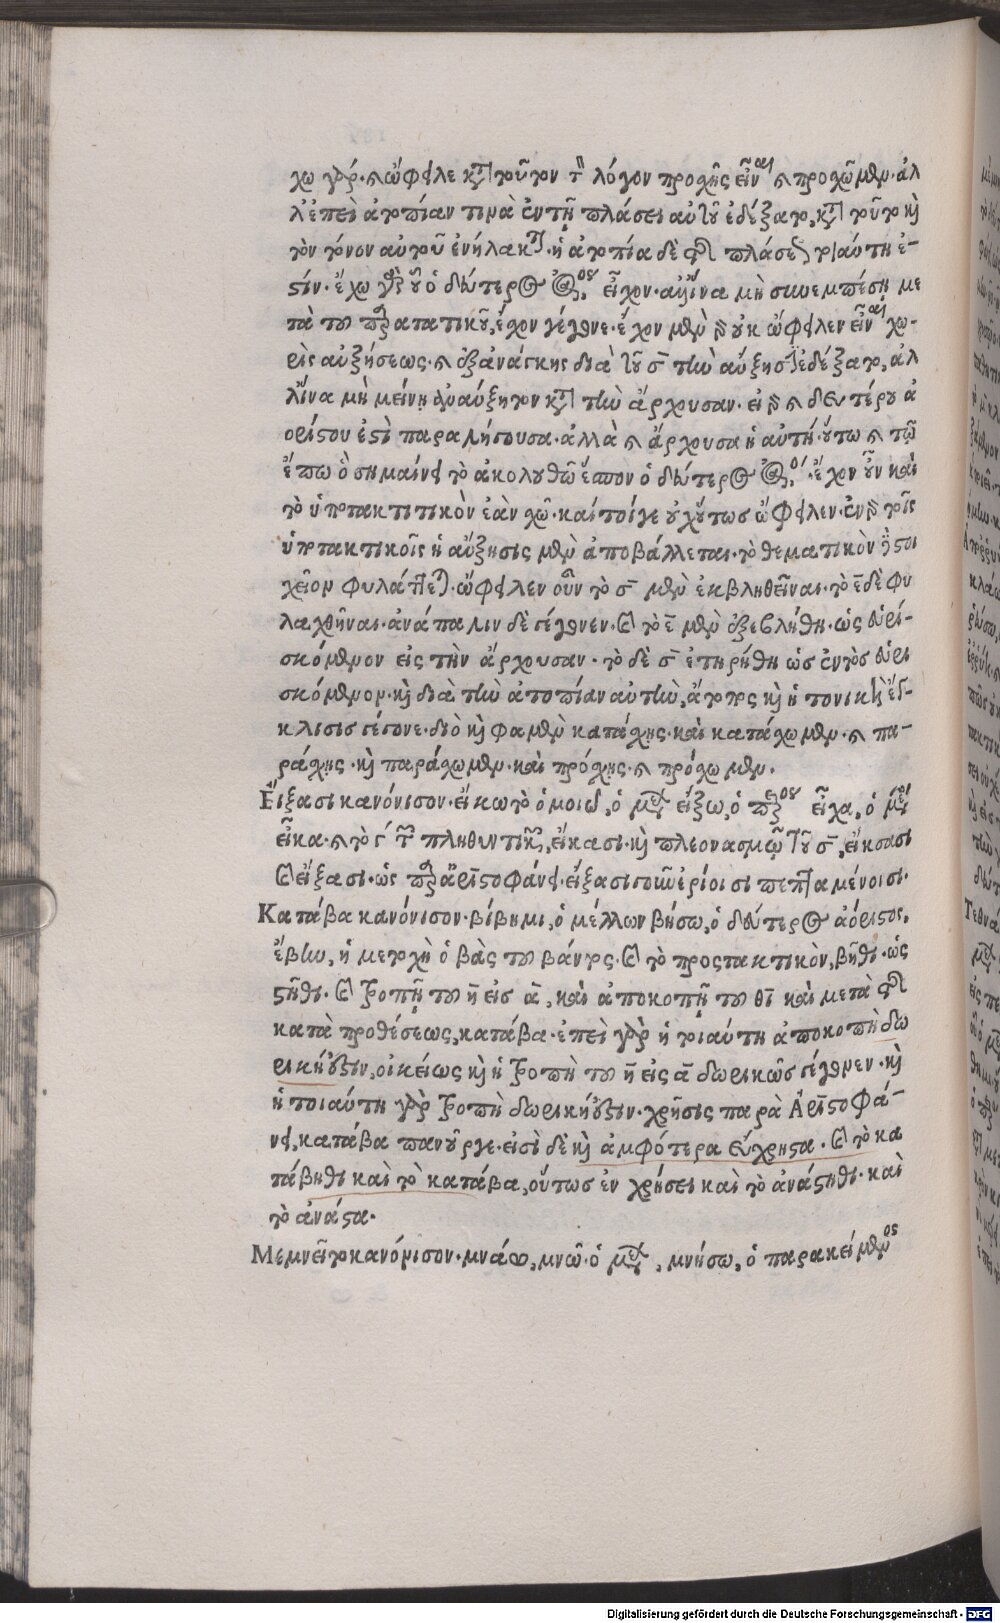 χω γάρ. καὶ ὤφειλε κατὰ τοῦτον τὸν λόγον προχῇς εἶναι καὶ προχῶμεν. ἀλ
λ' ἐπεὶ ἀτοπίαν τινὰ ἐν τῇ πλάσει αὐτοῦ ἐδέξατο, κατὰ τοῦτο καὶ
τὸν τόνον αὐτοῦ ἐνήλλακται. ἡ ἀτοπία δὲ τῆς πλάσεως τοιαύτη ἐ-
στίν. ἔχω
τὰ τοῦ προστατικοῦ, ἔχον γέγονε. ἔχον μὲν γὰρ οὐκ ὤφειλεν εἶναι χω-
ρὶς αὐξήσεως. καὶ ἐξ ἀνάγκης διὰ τοῦ σ τὴν αὔξησιν ἐδέξατο, ἀλ
λ' ἵνα μὴ μείνῃ ἀναύξητον κατὰ τὴν ἄρχουσαν. εἰ γὰρ καὶ δευτέρου ἀ
ορίστου ἐστὶ παραλήγουσα. ἀλλὰ καὶ ἄρχουσα ἡ αὐτή. οὕτω καὶ τῷ
ἕπω ὃ σημαίνει τὸ ἀκολουθῶ ἕσπον ὁ δεύτερος ἀόριστος. ἔχον οὖν καὶ
τὸ ὑποτακτικὸν ἐὰν χῶ. καίτοιγε οὐχ οὕτως ὤφειλεν. ἐν γὰρ τοῖς
ὑποτακτικοῖς ἡ αὔξησις μὲν ἀποβάλλεται. τὸ θεματικὸν δὲ στοι
χεῖον φυλάττεται. ὤφειλεν οὖν τὸ σ μὲν ἐκβληθεῖναι. τὸ ε δὲ φυ
λαχθῆναι. ἀνάπαλιν δὲ γέγονεν. καὶ τὸ ε μὲν ἐξεβλήθη. ὡς εὑρι-
σκόμενον εἰς τὴν ἄρχουσαν. τὸ δὲ σ ἐτηρήθη ὡς ἐντὸς εὑρι
σκόμενον. καὶ διὰ τὴν ἀτοπίαν αὐτὴν, ἄτοπος καὶ ἡ τονικὴ ἔγ-
κλισις γέγονε. διὸ καὶ φαμὲν κατάχῃς. καὶ κατάχωμεν. καὶ πα-
ράχῃς. καὶ παράχωμεν. καὶ πρόχῃς. καὶ πρόχωμεν.
Εἴξασι κανόνισον. εἴκω τὸ ὁμοιῶ, ὁ μέλλων εἴξω, ὁ παρακείμενος εἶχα, ὁ μέσος
εἶκα. καὶ τὸ γ τῶν πληθυντικῶν, εἴκασι. καὶ πλεονασμῷ τοῦ σ, εἴκσασι
καὶ εἴξασι. ὡς παρὰ ἀριστοφάνει. εἴξασι γοῦν ἐρίοισι πεπταμένοισι.
Κατάβα κανόνισον. βίβημι, ὁ μέλλων βήσω, ὁ δεύτερος ἀόριστος,
ἔβην, ἡ μετοχὴ ὁ βὰς τοῦ βάντος. καὶ τὸ προστακτικὸν, βῆθι. ὡς
στῆθι. καὶ τροπῇ τοῦ η εἰς α, καὶ ἀποκοπῇ τοῦ θι καὶ μετὰ τῆς
κατὰ προθέσεως, κατάβα. ἐπεὶ γὰρ ἡ τοιαύτη ἀποκοπὴ δω
ρική ἐστιν, οἰκείως καὶ ἡ τροπὴ τοῦ η εἰς α δωρικῶς γέγονεν. καὶ
ἡ τοιαύτη γὰρ τροπὴ δωρική ἐστιν. χρῆσις παρὰ Ἀριστοφά-
νει, κατάβα πανοῦργε. εἰσὶ δὲ καὶ ἀμφότερα εὔχρηστα. καὶ τὸ κα
τάβηθι καὶ τὸ κατάβα, οὕτως ἐν χρήσει καὶ τὸ ἀνάστηθι. καὶ
τὸ ἀνάστα.
Μεμνεῖτο κανόνισον. μνάω, μνῶ. ὁ μέλλων, μνήσω, ὁ παρακείμενος
Digitalisierung gefördert durch die Deutsche Forschungsgemeinschaft - DFG